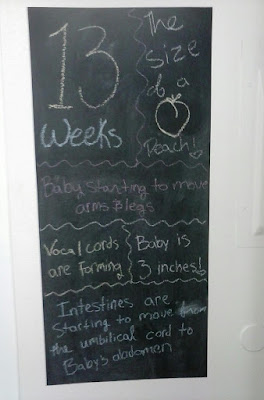 13
Weeks
The
size
of a
Peach!
Baby starting to move
arms & legs
Vocal cords
are forming
Baby is
3 inches!
Intestines are
Starting to move from
the umbilical cord to
Baby's abdomen